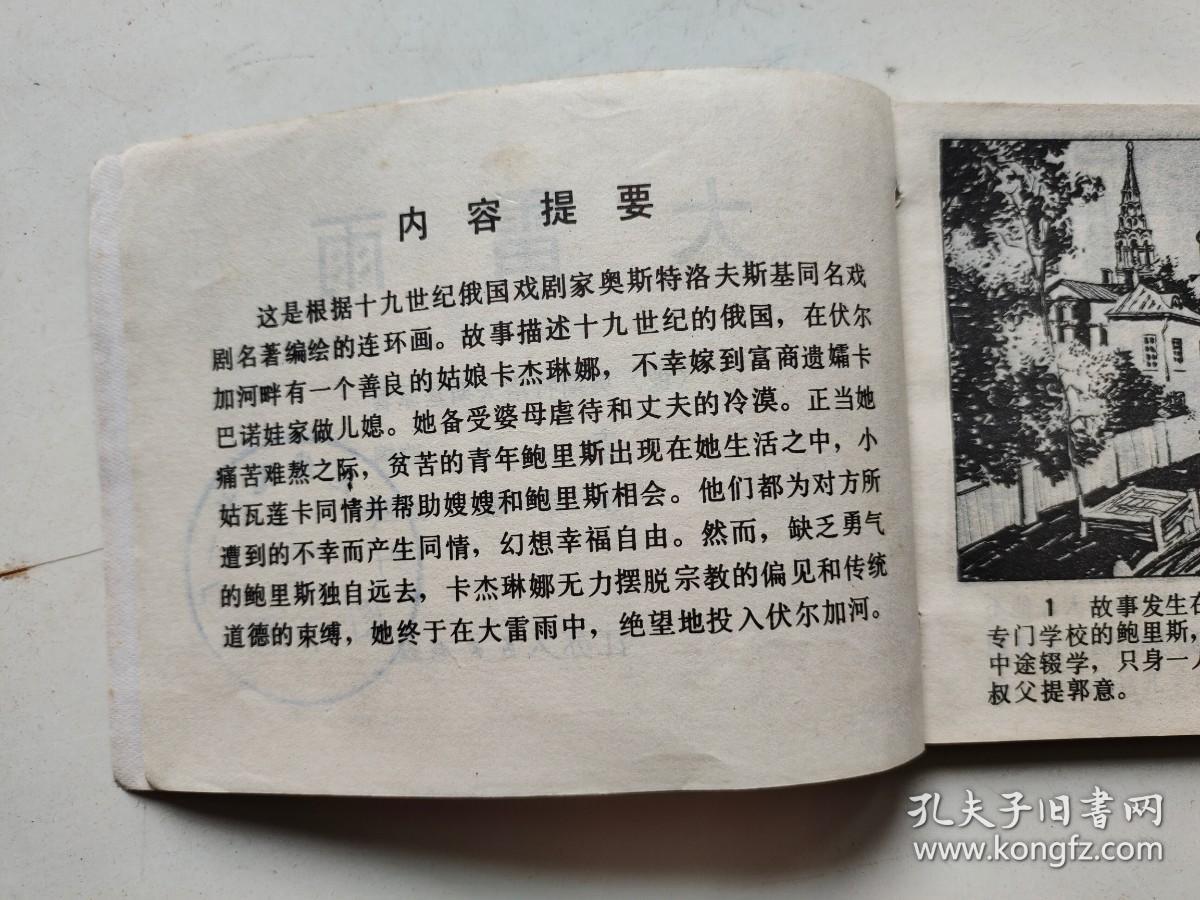 内容提要
这是根据十九世纪俄国戏剧家奥斯特洛夫斯基同名戏
剧名著编绘的连环画。故事描述十九世纪的俄国，在伏尔
加河畔有一个善良的姑娘卡杰琳娜，不幸嫁到富商遗孀卡
巴诺娃家做儿媳。她备受婆母虐待和丈夫的冷漠。正当她
痛苦难熬之际，贫苦的青年鲍里斯出现在她生活之中，小
姑瓦莲卡同情并帮助嫂嫂和鲍里斯相会。他们都为对方所
遭到的不幸而产生同情，幻想幸福自由。然而，缺乏勇气
的鲍里斯独自远去，卡杰琳娜无力摆脱宗教的偏见和传统
道德的束缚，她终于在大雷雨中，绝望地投入伏尔加河。
大雷雨
1 故事发生在
专门学校的鲍里斯，
中途辍学，只身一人
叔父提郭意。
孔夫子旧书网
www.kongfz.com